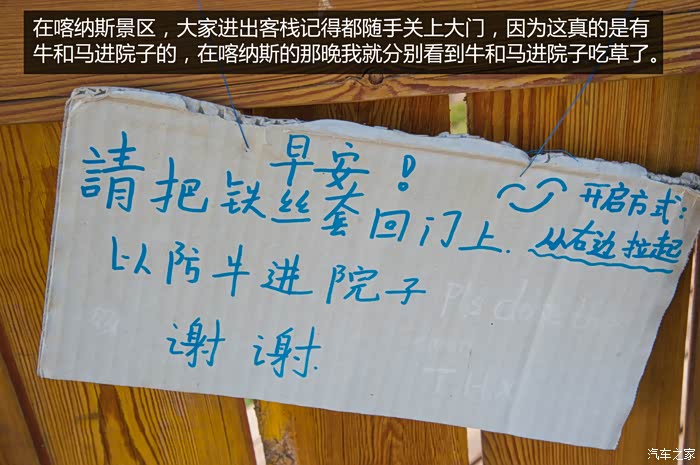 在喀纳斯景区，大家进出客栈记得都随手关上大门，因为这真的是有
牛和马进院子的，在喀纳斯的那晚我就分别看到牛和马进院子吃草了。
早安！
請把铁丝套回门上.
以防牛进院子
谢谢.
开启方式：
从右边拉起
pls
汽车之家